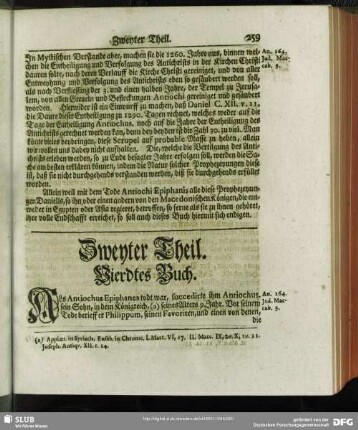 Zweyter Theil. 259
In Mystischen Verstande aber, machen sie die 1260. Jahre aus, binnen wel-
chen die Entheiligung und Verfolgung des Antichrists in der Kirchen Christi
dauren solte, nach deren Verlauff die Kirche Christi gereiniget, und von aller
Entweyhung und Verfolgung des Antichrists eben so gesäubert werden soll,
als nach Verfliessung der 3. und einen halben Jahre, der Tempel zu Jerusa-
lem, von allen Greueln und Befleckungen Antiochi gereiniget und gesäubert
worden. Hierwider ist ein Einwurff zu machen, daß Daniel C. XII. v. 11.
die Dauer dieser Entheiligung zu 1290. Tagen rechnet, welches weder auf die
Tage der Entheiligung Antiochus, noch auf die Jahre der Entheiligung des
Antichrists gerechnet werden kan, denn bey beyden ist die Zahl 30. zu viel. Man
könte vieles beybringen, diese Scrupel auf probable Masse zu heben, allein
wir wollen uns dabey nicht aufhalten. Die, welche die Vertilgung des Anti-
christs erleben werden, so zu Ende besagter Jahre erfolgen soll, werden die Sa-
che am besten erklären können, indem die Natur solcher Prophezeyungen diese
ist, daß sie nicht durchgehends verstanden werden, biß sie durchgehends erfüllet
worden.
Allein weil mit dem Tode Antiochi Epiphanis alle diese Prophezeyun-
gen Daniells, so ihn oder einen andern von den Macedonischen Königen, die ent-
weder in Egypten oder Asia regieret, betreffen, so ferne als sie zu ihnen gehöret,
ihre volle Endschafft erreichet, so soll auch dieses Buch hiermit sich endigen.
An. 164.
Jud. Mac-
cab. 3.
Zweyter Theil.
Vierdtes Buch.
Als Antiochus Epiphanes todt war, succedirte ihm Antiochus,
sein Sohn, in dem Königreich, (a) seines Alters 9. Jahr. Vor seinem
Tode berieff er Philippum, seinen Favoriten, und einen von denen,
die
An. 164.
Jud. Mac-
cab. 3.
(a) Appian. in Syriacis. Euseb. in Chronic. I. Macc. VI, 17. II. Macc. IX, 29. X, 10. 11.
Joseph. Antiqv. XII. c. 14.
SLUB
Wir führen Wissen.
gefördert von der
Deutschen Forschungsgemeinschaft
DFG